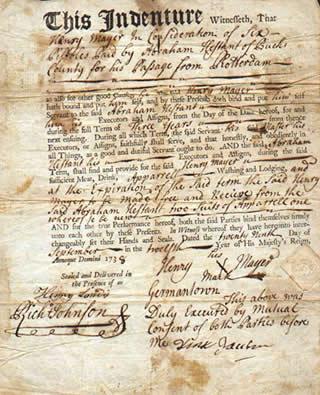 This Indenture Witnesseth, That
Henry Mayer In Consideration of Six
Pistoles Paid by Abraham Hestant of Bucks
County for his Passage from Rotterdam
as also for other good Causes he the said Henry Mayer
hath bound and put himself, and by these Presents doth bind and put himself
Servant to the said Abraham Hestant
Executors and Assigns, from the Day of the Date hereof, for and
during the full Term of Three Years
next ensuing. During all which Term, the said Servant his said Master his
Executors, or Assigns, faithfully shall serve, and that honestly and obediently in
all Things, as a good and dutiful Servant ought to do. AND the said Abraham
Hestant his Executors and Assigns, during the said
Term, shall find and provide for the said Henry Mayer
sufficient Meat, Drink, Apparel, Washing and Lodging, and
at the Expiration of the said term the said Henry
Mayer to be made free and Receive from the
Said Abraham Hestant two Suits of Apparrell one
whereof to be new
AND for the true Performance hereof, both the said Parties bind themselves firmly
unto each other by these Presents. In Witness whereof they have interchangeably set their Hands and Seals. Dated the twenty Ninth Day of
September in the twelfth Year of His Majesty's Reign,
Annoque Domini 1738
his
Henry Mayer
Mark
Sealed and Delivered in
the Presence of us
Henry
Rich Johnson
Germantown This above was
Duly Executed by Mutual
Consent of both the Parties before
me